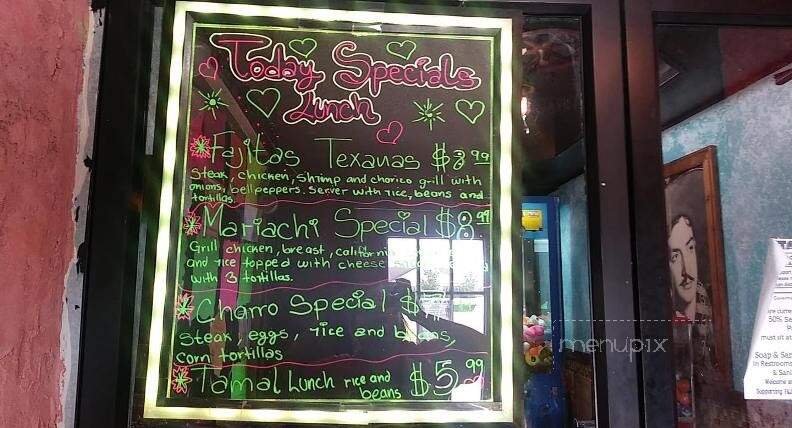 Today Specials
Lunch
Fajitas Texanas $8.99
Steak, chicken, shrimp and chorico grill with
onions, bellpeppers. Server with rice, beans and
tortillas.
Mariachi Special $8.99
Grill chicken, breast, californi
and rice topped with cheese
with 3 tortillas.
Charro Special $
Steak, eggs, rice and beans,
corn tortillas
Tamal Lunch rice and
beans $5.99
menupix
50% Se
must sit at
Soap & San
in Restrooms
& Sani
Welcome
Supporting